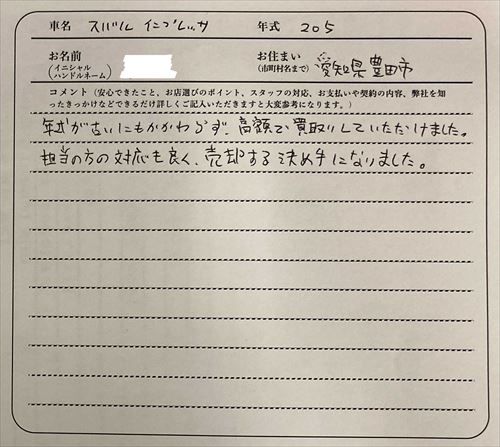 車名 スバル インプレッサ 年式 205
お名前 (イニシャル ハンドルネーム) お住まい (市町村名まで) 愛知県豊田市
コメント（安心できたこと、お店選びのポイント、スタッフの対応、お支払いや契約の内容、弊社を知
ったきっかけなどできるだけ詳しくご記入いただきますと大変参考になります。）
年式が古いにもかかわらず、高額で買取りしていただけました。
担当の方の対応も良く、売却する決め手になりました。